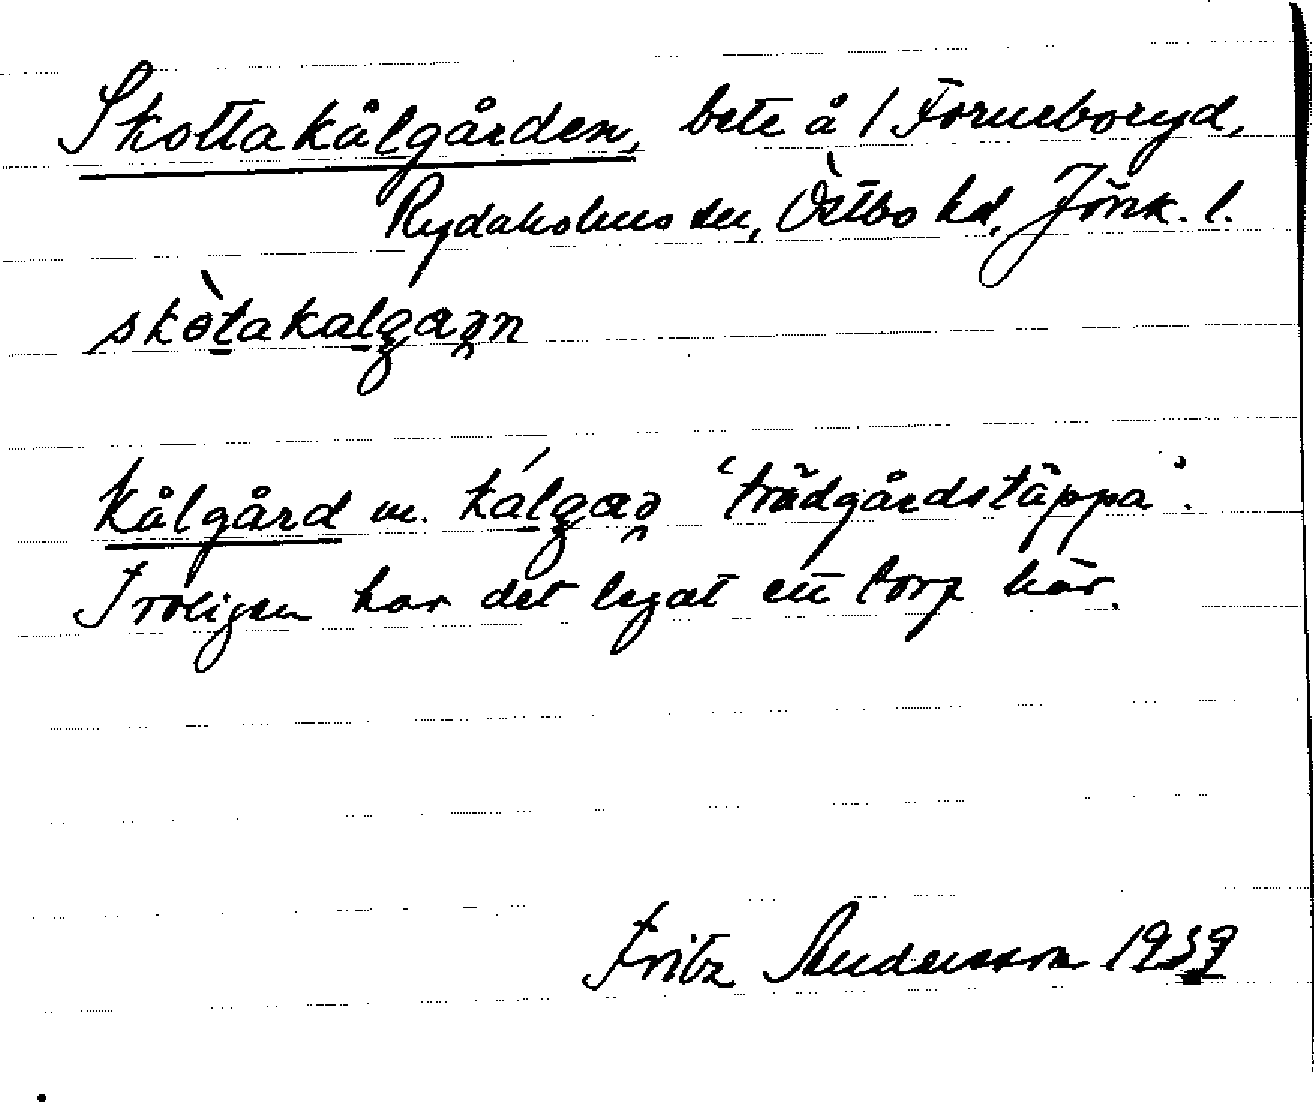 Skottakålgården, bete å 1 Forneboryd,
Rydaholms sn, Östbo hd, Jönk. l.
skòtakalgaən
kålgård m. kálgaə 'trädgårdstäppa'.
Troligen har det legat ett torp här.
Fritz Andersson 1939